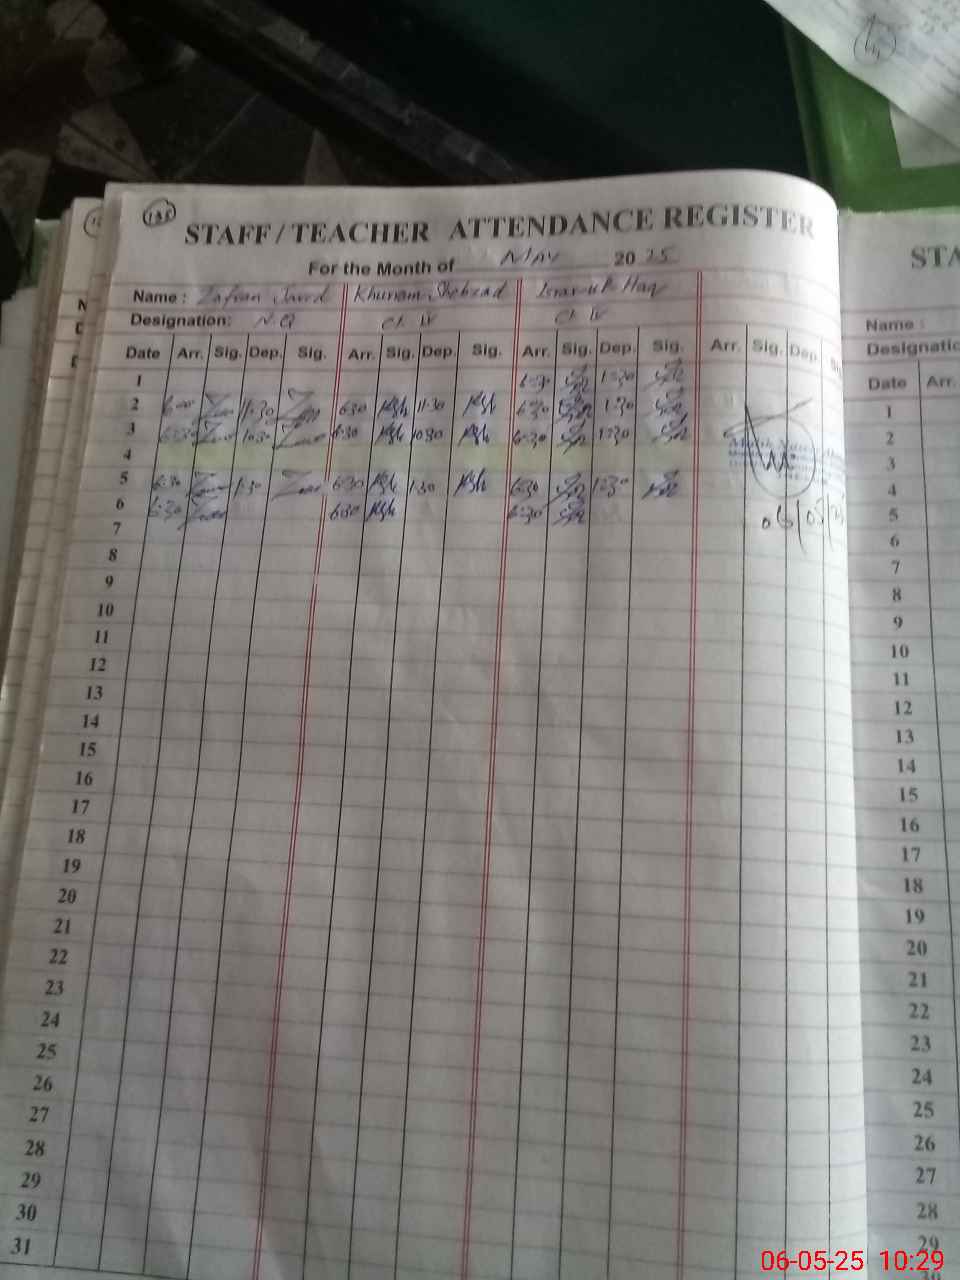 135
STAFF / TEACHER ATTENDANCE REGISTER
For the Month of May 20 25
Name : Zafran Javed Khurram Shehzad Israr-ul-Haq
Designation: N.Q Cl. IV Cl. IV
Date Arr. Sig. Dep. Sig. Arr. Sig. Dep. Sig. Arr. Sig. Dep. Sig. Arr. Sig. Dep.
1 6:30 1:30
2 11:30 6:30 11:30 6:30 1:30
3 6:30 10:30 6:30 10:30 6:30 1:30
4
5 6:30 1:30 6:30 1:30 6:30 1:30
6 6:30 6:30 6:30
06/05/
7
8
9
10
11
12
13
14
15
16
17
18
19
20
21
22
23
24
25
26
27
28
29
30
31
STA
Name :
Designatio
Date Arr.
1
2
3
4
5
6
7
8
9
10
11
12
13
14
15
16
17
18
19
20
21
22
23
24
25
26
27
28
29
06-05-25 10:29